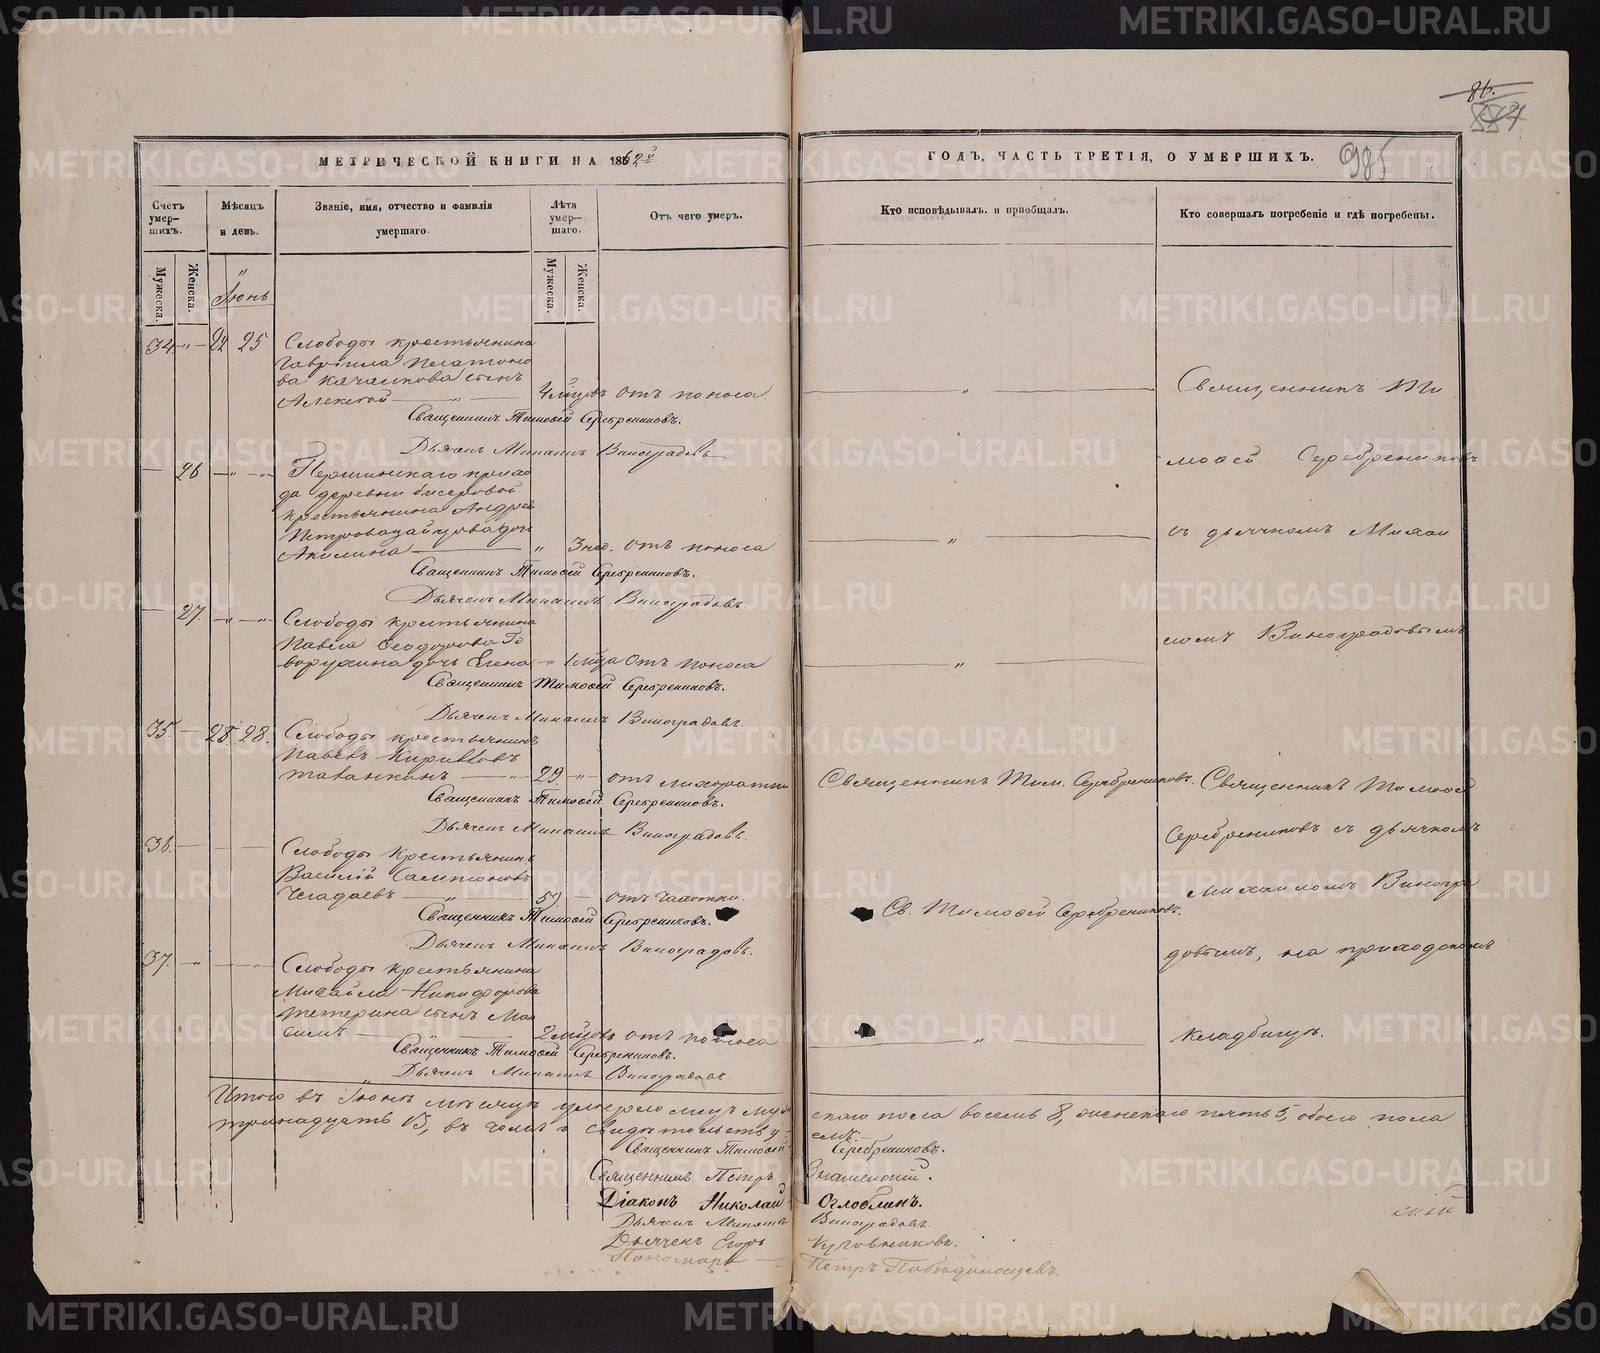 86.
887
985
МЕТРИЧЕСКОЙ КНИГИ НА 1862й
ГОДЪ, ЧАСТЬ ТРЕТІЯ, О УМЕРШИХЪ.
Счетъ умер-шихъ.
Мѣсяцъ и день.
Званіе, имя, отчество и фамилія умершаго.
Лѣта умер-шаго.
Отъ чего умеръ.
Кто исповѣдывалъ и пріобщалъ.
Кто совершалъ погребеніе и гдѣ погребены.
Мужеска.
Женска.
Мужеска.
Женска.
Іюнь
34. 22 25 Слободы крестьянина
Гавріила Платоно
ва Качалкова сынъ
Алексѣй 4 мѣсяцовъ отъ поноса
Священникъ Тимоѳей Серебрениковъ.
Дьячекъ Михаилъ Виноградовъ
26 Першинскаго прихо
да деревни Бисеровой
крестьянина Андрея
Петрова дочь
Акилина 3 нед. отъ поноса
Священникъ Тимоѳей Серебрениковъ.
Дьячекъ Михаилъ Виноградовъ.
27. Слободы крестьянина
Павла Ѳеодорова Го
ворухина дочь Елена 1 мѣсяца отъ поноса
Священникъ Тимоѳей Серебрениковъ.
Дьячекъ Михаилъ Виноградовъ.
35. 25. 28. Слободы крестьянинъ
Павелъ Кирилловъ
Таванкинъ 29 отъ лихорадки
Священникъ Тим. Серебрениковъ.
Священникъ Тимоѳей Серебрениковъ.
Дьячекъ Михаилъ Виноградовъ.
36. Слободы крестьянинъ
Василій Сампсоновъ
Чегадаевъ 57 отъ чахотки.
Св. Тимоѳей Серебрениковъ.
Священникъ Тимоѳей Серебрениковъ.
Дьячекъ Михаилъ Виноградовъ.
37. Слободы крестьянина
Михайла Никифорова
Тетерина сынъ Мак
симъ 2 мѣсяцовъ отъ поноса
Священникъ Тимоѳей Серебрениковъ.
Дьячекъ Михаилъ Виноградовъ.
Священникъ Ти
моѳей Серебрениковъ
съ дьячкомъ Михаи
ломъ Виноградовымъ
Священникъ Тимоѳей
Серебрениковъ съ дьячкомъ
Михаиломъ Виногра
довымъ, на приходскомъ
кладбищѣ.
Итого въ Іюнѣ мѣсяцѣ умерло лицъ муже скаго пола восемь 8, женскаго пять 5, обоего пола
тринадцать 13, въ чемъ и свидѣтельствуемъ:
Священникъ Тимоѳей Серебрениковъ.
Священникъ Петръ Знаменскій.
Діаконъ Николай Оглоблинъ.
Дьячекъ Михаилъ Виноградовъ.
Дьячекъ Егоръ
Пономарь Петръ Побѣдоносцевъ.
METRIKI.GASO-URAL.RU